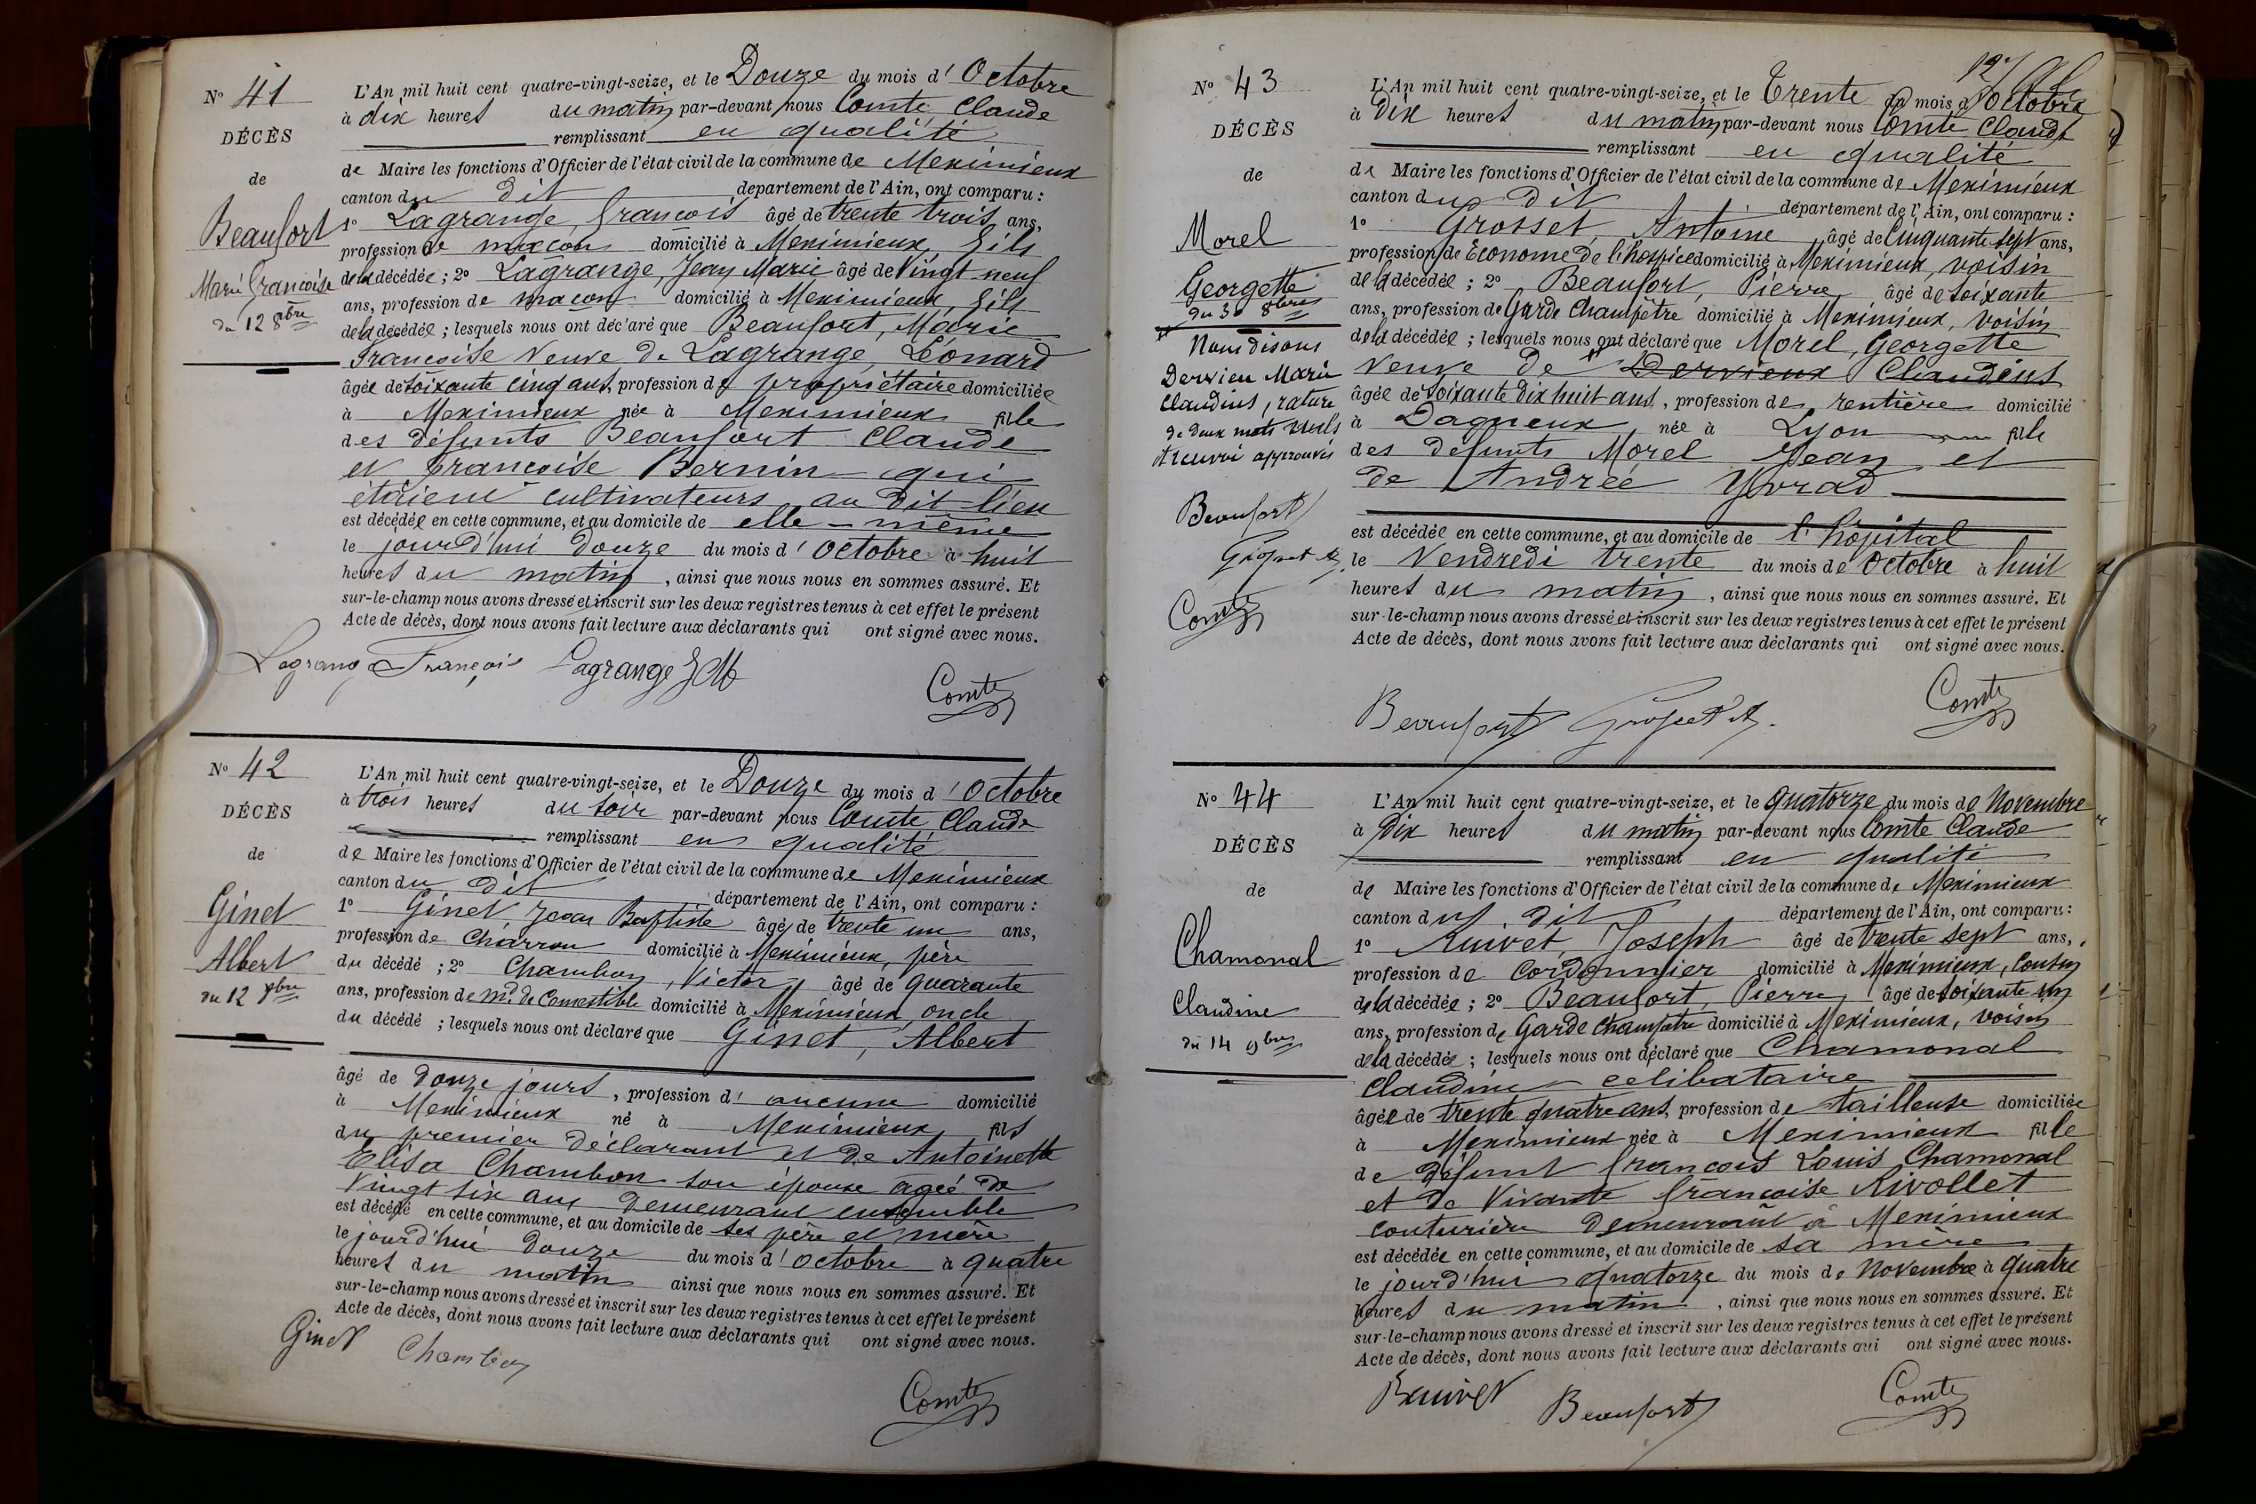 N° 41
DÉCÈS
de
Beaufort
Marie Françoise
du 12 8bre
L'An mil huit cent quatre-vingt-seize, et le Douze du mois d'Octobre
à dix heures du matin par-devant nous Comte Claude
remplissant en qualité
de Maire les fonctions d'Officier de l'état civil de la commune de Meximieux
canton du dit département de l'Ain, ont comparu :
1° Lagrange, françois âgé de trente trois ans,
profession de maçon domicilié à Meximieux, fils
de la décédée ; 2° Lagrange, Jean Marie âgé de Vingt neuf
ans, profession de maçon domicilié à Meximieux, fils
de la décédée ; lesquels nous ont déclaré que Beaufort, Marie
françoise Veuve de Lagrange, Léonard
âgée de soixante cinq ans, profession de propriétaire domiciliée
à Meximieux née à Meximieux fille
des défunts Beaufort Claude
et françoise Bernin qui
étaient cultivateurs au dit lieu
est décédée en cette commune, et au domicile de elle-même
le jourd'hui douze du mois d'Octobre à huit
heures du matin, ainsi que nous nous en sommes assuré. Et
sur-le-champ nous avons dressé et inscrit sur les deux registres tenus à cet effet le présent
Acte de décès, dont nous avons fait lecture aux déclarants qui ont signé avec nous.
Lagrange François Lagrange J M
Comte
N° 42
DÉCÈS
de
Ginet
Albert
du 12 8bre
L'An mil huit cent quatre-vingt-seize, et le Douze du mois d'Octobre
à trois heures du soir par-devant nous Comte Claude
remplissant en qualité
de Maire les fonctions d'Officier de l'état civil de la commune de Meximieux
canton du dit département de l'Ain, ont comparu :
1° Ginet, Jean Baptiste âgé de trente un ans,
profession de Charron domicilié à Meximieux, père
du décédé ; 2° Chambon, Victor âgé de quarante
ans, profession de Md. de Comestible domicilié à Meximieux oncle
du décédé ; lesquels nous ont déclaré que Ginet, Albert
âgé de douze jours, profession d'aucune domicilié
à Meximieux né à Meximieux fils
du premier déclarant et de Antoinette
Elisa Chambon son épouse agée de
Vingt six ans demeurant ensemble
est décédé en cette commune, et au domicile de ses père et mère
le jourd'hui douze du mois d'Octobre à quatre
heures du matin ainsi que nous nous en sommes assuré. Et
sur-le-champ nous avons dressé et inscrit sur les deux registres tenus à cet effet le présent
Acte de décès, dont nous avons fait lecture aux déclarants qui ont signé avec nous.
Ginet Chambon
Comte
N° 43
DÉCÈS
de
Morel
Georgette
du 30 8bre
Nous disons
Dervieu Marie
Claudius, rature
de deux mots nuls
et renvoi approuvés
Beaufort
Grosset A
Comte
L'An mil huit cent quatre-vingt-seize, et le trente du mois d'Octobre
à Dix heures du matin par-devant nous Comte Claude
remplissant en qualité
de Maire les fonctions d'Officier de l'état civil de la commune de Meximieux
canton du dit département de l'Ain, ont comparu :
1° Grosset, Antoine âgé de Cinquante sept ans,
profession de Econome de l'hospice domicilié à Meximieux, voisin
de la décédée ; 2° Beaufort, Pierre âgé de soixante
ans, profession de Garde Champêtre domicilié à Meximieux, voisin
de la décédée ; lesquels nous ont déclaré que Morel, Georgette
Veuve de Dervieux Claudius
âgée de soixante dix huit ans, profession de rentière domicilié
à Dagneux née à Lyon fille
des défunts Morel Jean et
de Andrée Yvrad
est décédée en cette commune, et au domicile de l'hôpital
le Vendredi trente du mois de Octobre à huit
heures du matin, ainsi que nous nous en sommes assuré. Et
sur-le-champ nous avons dressé et inscrit sur les deux registres tenus à cet effet le présent
Acte de décès, dont nous avons fait lecture aux déclarants qui ont signé avec nous.
Beaufort Grosset A.
Comte
N° 44
DÉCÈS
de
Chamonal
Claudine
du 14 9bre
L'An mil huit cent quatre-vingt-seize, et le quatorze du mois de Novembre
à Dix heures du matin par-devant nous Comte Claude
remplissant en qualité
de Maire les fonctions d'Officier de l'état civil de la commune de Meximieux
canton du dit département de l'Ain, ont comparu :
1° Ruivet, Joseph âgé de trente sept ans,
profession de cordonnier domicilié à Meximieux, Cousin
de la décédée ; 2° Beaufort, Pierre âgé de soixante un
ans, profession de Garde Champêtre domicilié à Meximieux, voisin
de la décédée ; lesquels nous ont déclaré que Chamonal
Claudine celibataire
âgée de trente quatre ans, profession de tailleuse domiciliée
à Meximieux née à Meximieux fille
de défunt françois Louis Chamonal
et de Vivante françoise Rivollet
couturière demeurant à Meximieux
est décédée en cette commune, et au domicile de sa mère
le jourd'hui quatorze du mois de Novembre à quatre
heures du matin, ainsi que nous nous en sommes assuré. Et
sur-le-champ nous avons dressé et inscrit sur les deux registres tenus à cet effet le présent
Acte de décès, dont nous avons fait lecture aux déclarants qui ont signé avec nous.
Ruivet Beaufort
Comte